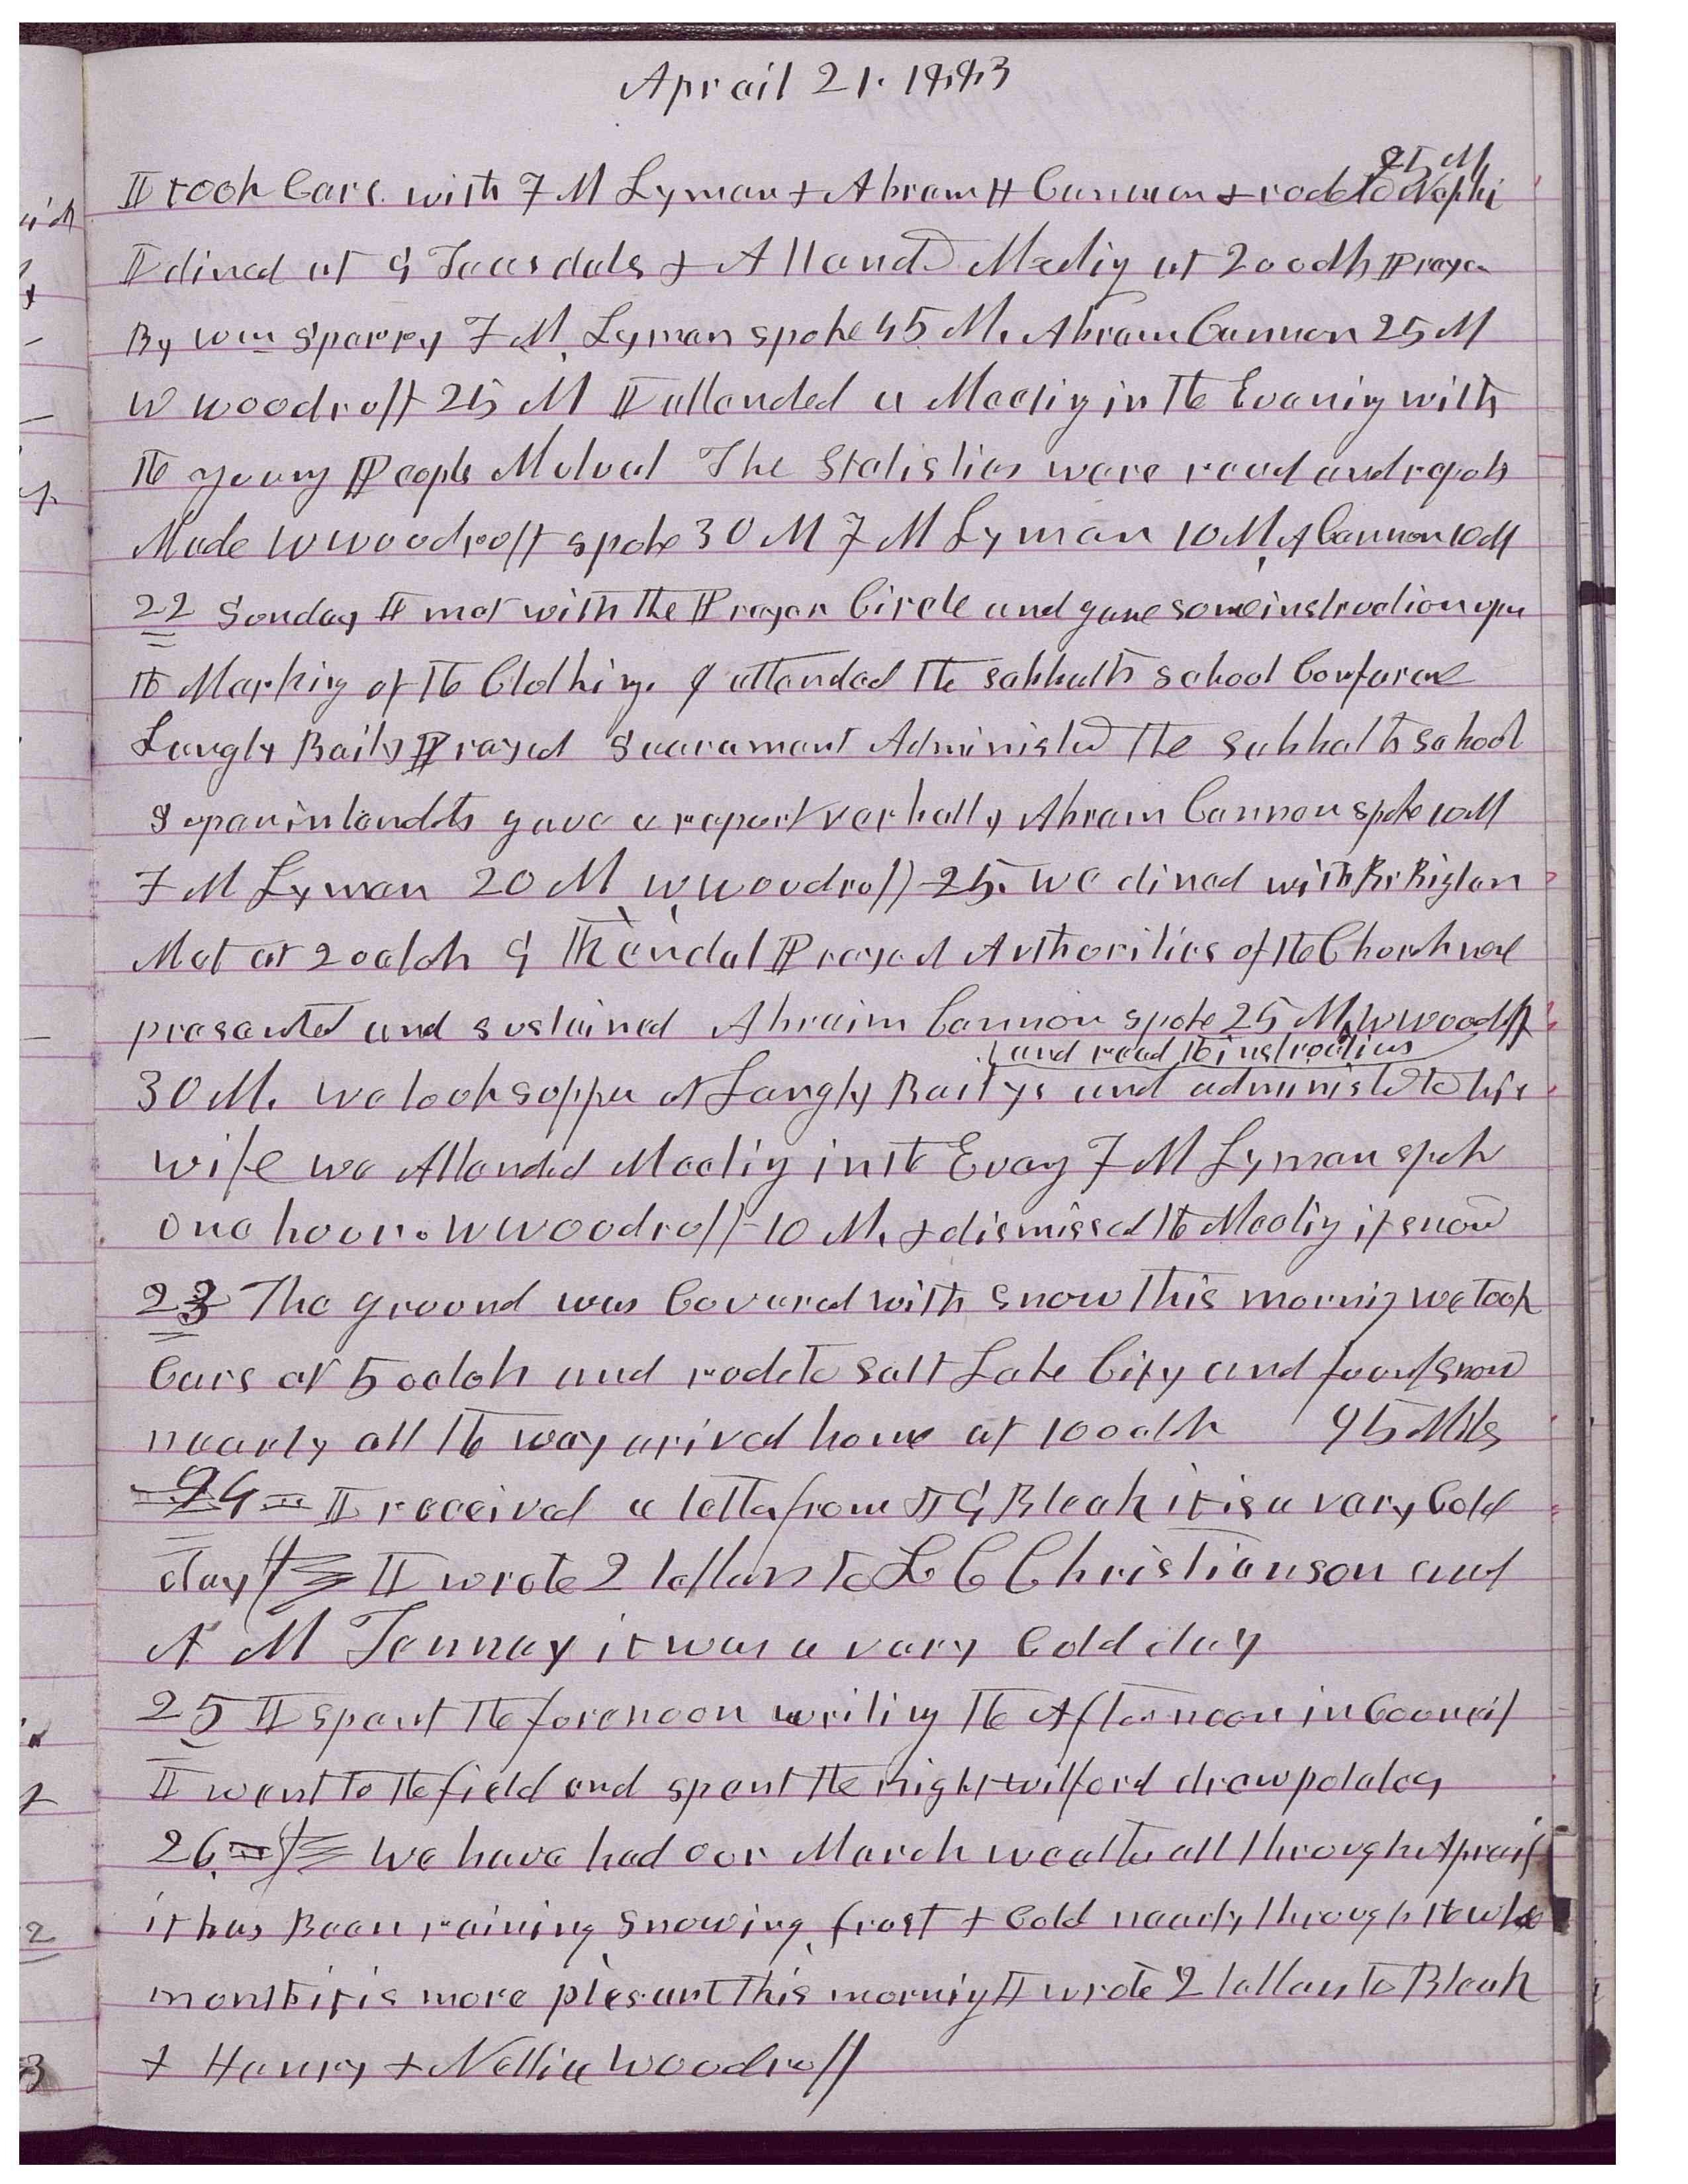 Aprail 21. 1883
95 M
I took Cars. with F M Lyman & Abram H Cannon & rode to Nephi
I dined at G Teasdals & Attand Meetig at 2 oclok Prayer
By Wm Sparry F M. Lyman spoke 45 M. Abram Cannon 25 M
W Woodruff 25 M I attended a Meetig in the Evenig with
the young People Mutual The Statistics were read and repots
Made W Woodruff spoke 30 M F M Lyman 10 M, A Cannon 10 M
22 Sunday I met with the Prayer Circle and gave some instruction upon
the Marking of the Clothing. I attended the sabbath school Conferene
Langly Baily Prayed Sacrament Administed The sabbath school
Superintendets gave a report verbally Abram Cannon spoke 10 M
F M Lyman 20 M W Woodruff 25. we dined with Br Biglon
Met at 2 oclok G Kendal Prayed Authorities of the Church were
presented and sustained Abraim Cannon spoke 25 M, W Woodruff
and read the instructions
30 M. we took supper at Langly Bailys and administed to his
wife we Attended Meetig in the Eveng F M Lyman spok
one hour. W Woodruff 10 M. & dismissed the Meetig it snow
23 The ground was Covered with snow this mornig we took
Cars at 5 oclok and rode to Salt Lake City and found snow
neearly all the way arived home at 10 oclk 95 Miles
24 I received a letter from J G Bleak it is a very Cold
day I wrote 2 letters to L C Christianson and
A M Tenney it was a very Cold day
25 I spent the forenoon writing the Afternoon in Council
I went to the field and spent the night Wilford drew potatoes
26 We have had our March weather all through Aprail
it has Been raining snowing, frost & Cold neearly through the whole
month it is more plesant this mornig I wrote 2 letters to Bleak
& Henry & Nellie Woodruff